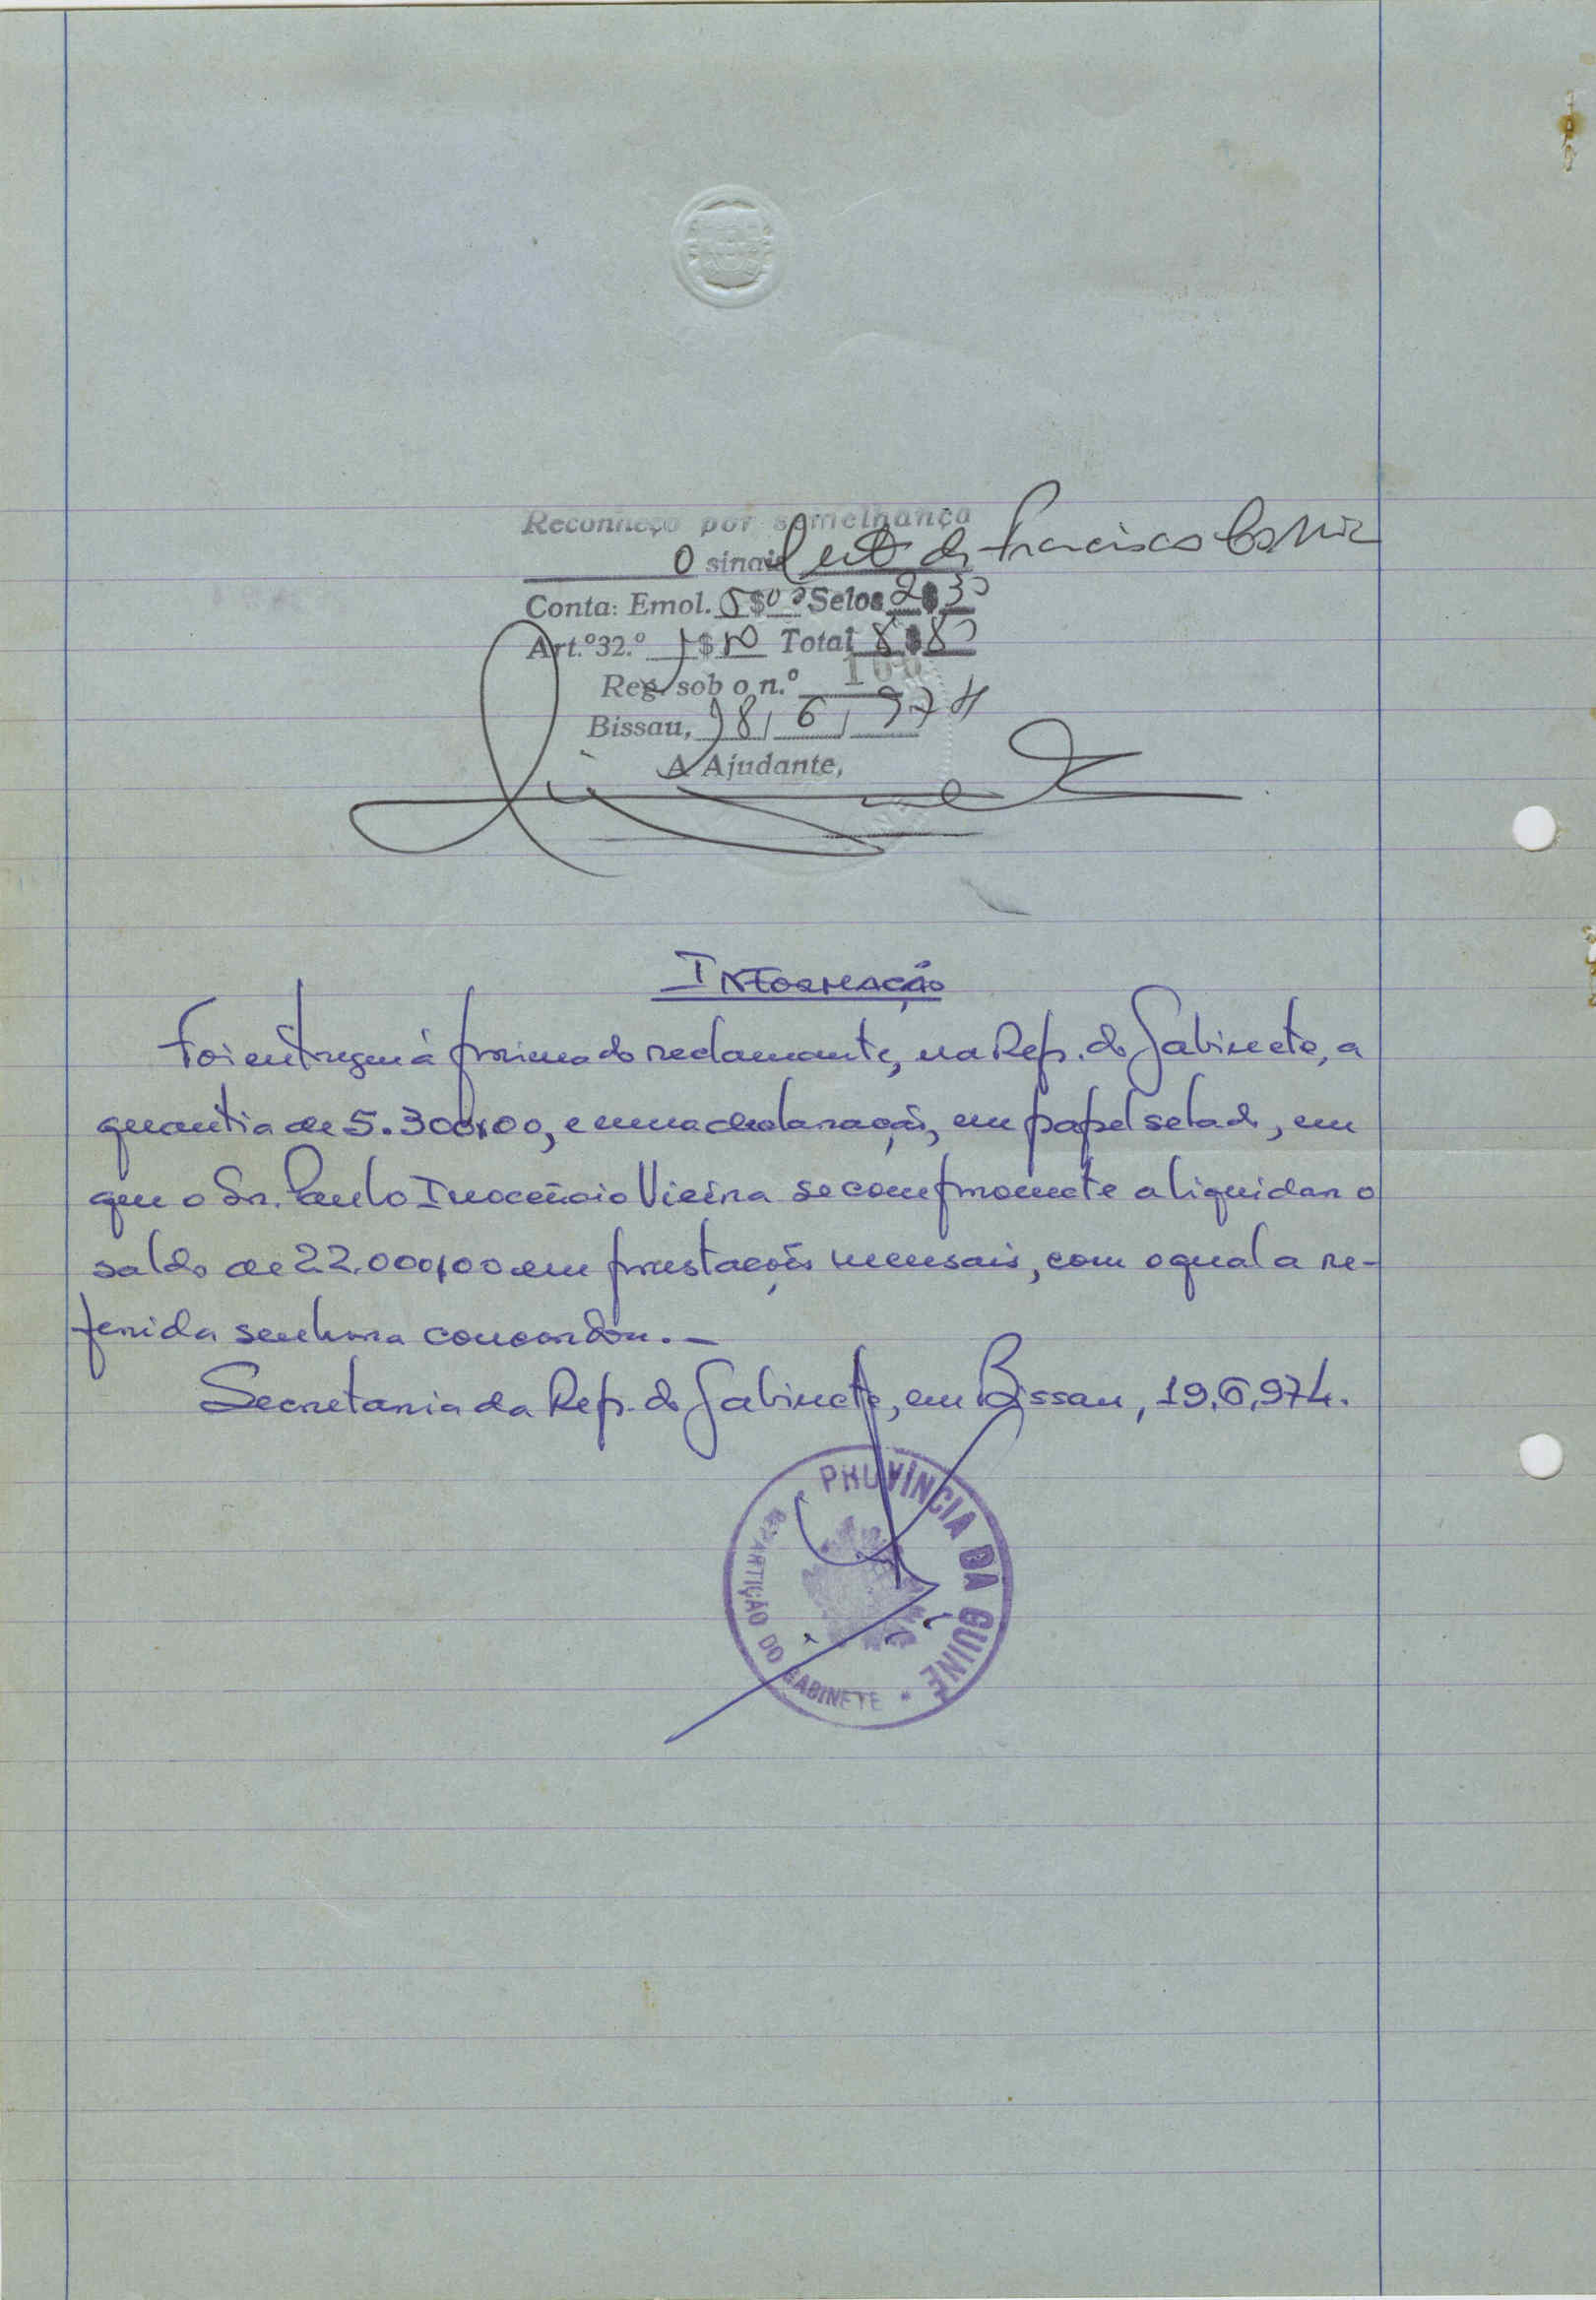 Reconheço por semelhança
O sinal de Francisco
Conta: Emol. 5$00 Selos 2$30
Art.º32.º 1$50 Total 8$80
Reg. sob o n.º
Bissau, 18/6/974
A Ajudante,
INFORMAÇÃO
Foi entregue á prima do reclamante, na Rep. do Gabinete, a
quantia de 5.300$00, e uma declaração, em papel selado, em
que o Sr. Paulo Inocêncio Vieira se compromete a liquidar o
saldo de 22.000$00 em prestações mensais, com o qual a re-
ferida senhora concordou.—
Secretaria da Rep. do Gabinete, em Bissau, 19.6.974.
PROVÍNCIA DA GUINÉ
REPARTIÇÃO DO GABINETE